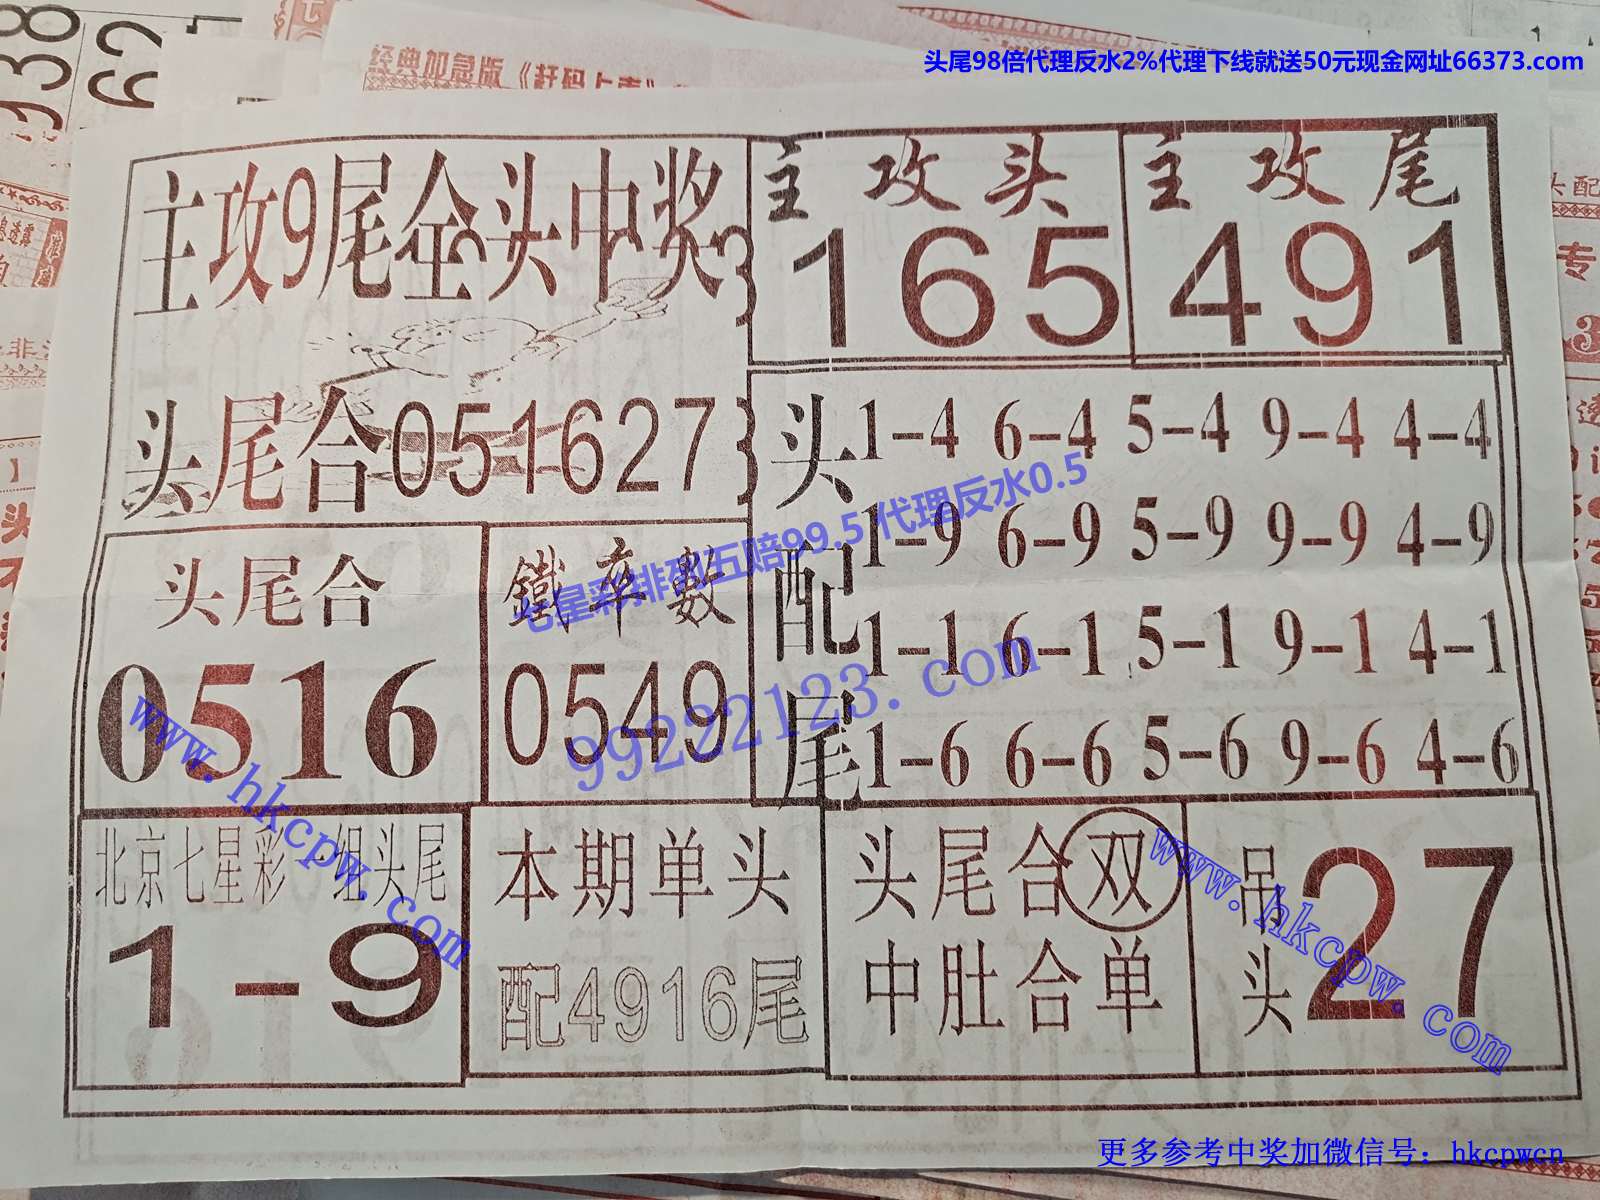 938
62
经典加急版《赶码上市》
头尾98倍代理反水2%代理下线就送50元现金网址66373.com
主攻9尾全头中奖
主攻头
165
主攻尾
491
头尾合051627
头配尾
1-4 6-4 5-4 9-4 4-4
1-9 6-9 5-9 9-9 4-9
1-1 6-1 5-1 9-1 4-1
1-6 6-6 5-6 9-6 4-6
七星彩排列五赔99.5 代理反水0.5
99222123.com
头尾合
0516
鐵率數
0549
www.hkcpw.com
北京七星彩一组头尾
1-9
本期单头
配4916尾
头尾合双
中肚合单
吊头27
www.hkcpw.com
更多参考中奖加微信号：hkcpwcn